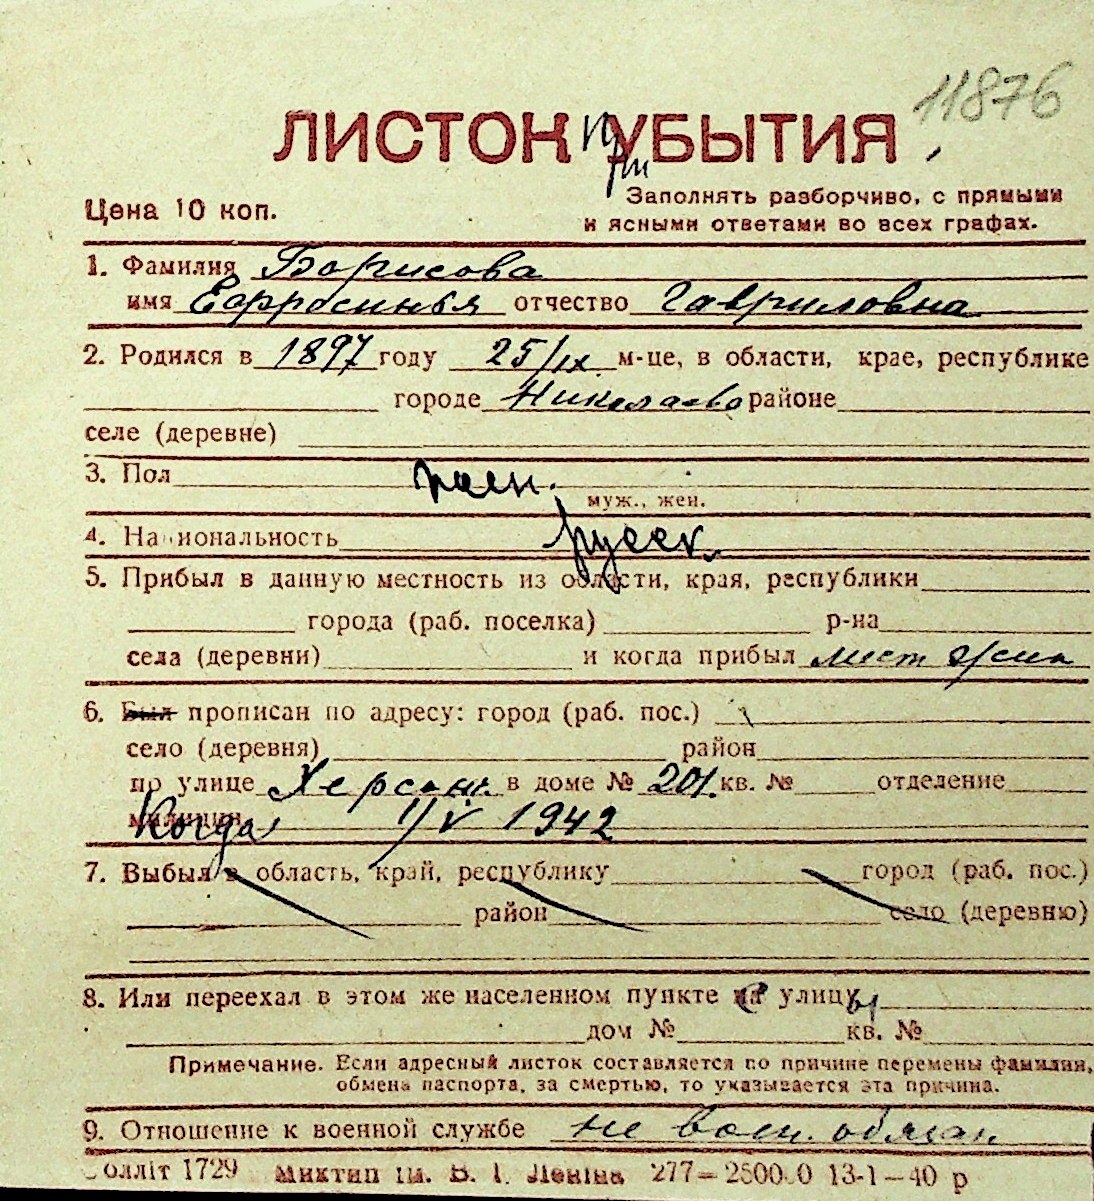 11876
ЛИСТОК УБЫТИЯ
при
Цена 10 коп.
Заполнять разборчиво, с прямыми
и ясными ответами во всех графах.
1. Фамилия Борисова
имя Ефросинья отчество Гавриловна
2. Родился в 1897 году 25/IX м-це, в области, крае, республике
городе Николаево районе
селе (деревне)
3. Пол жен.
муж., жен.
4. Национальность русск.
5. Прибыл в данную местность из области, края, республики
города (раб. поселка) р-на
села (деревни) и когда прибыл мест жит
6. Был прописан по адресу: город (раб. пос.)
село (деревня) район
по улице Херсон. в доме № 201. кв. № отделение
милиции Когда 1/V 1942
7. Выбыл в область, край, республику город (раб. пос.)
район село (деревню)
8. Или переехал в этом же населенном пункте на с улицу ы
дом № кв. №
Примечание. Если адресный листок составляется по причине перемены фамилии,
обмена паспорта, за смертью, то указывается эта причина.
9. Отношение к военной службе не воен. обязан
олліт 1729 Миктип ім. В. І. Леніна 277—2500.0 13-1—40 р